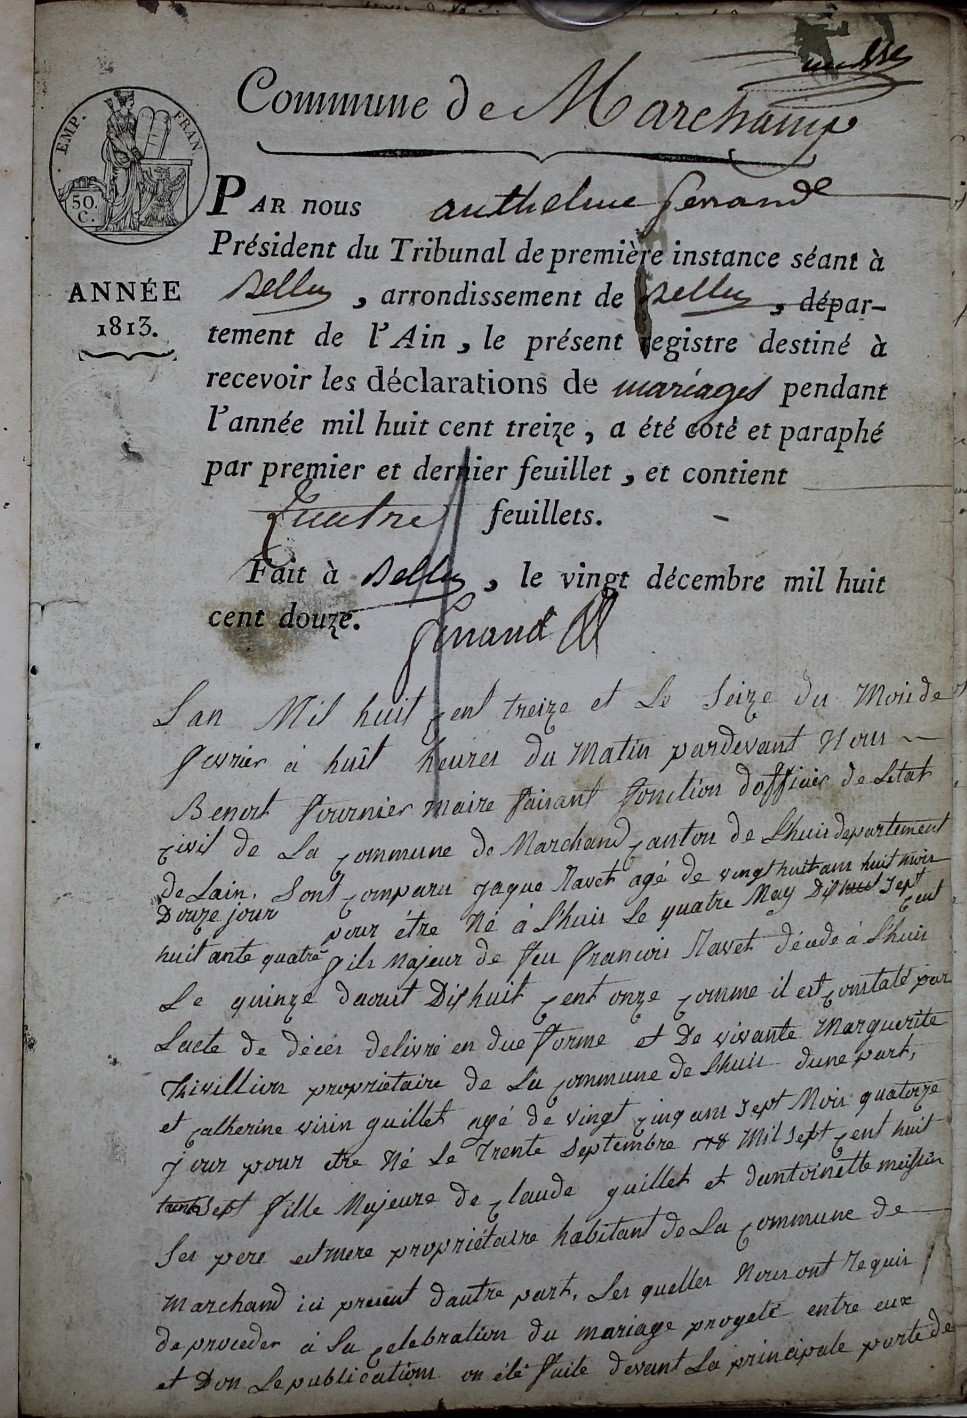 Commune de Marchamp
EMP. FRAN
50.
C.
ANNÉE
1813.
PAR nous anthelme ferrand
Président du Tribunal de première instance séant à
Belley, arrondissement de Belley, dépar-
tement de l'Ain, le présent registre destiné à
recevoir les déclarations de mariages pendant
l'année mil huit cent treize, a été coté et paraphé
par premier et dernier feuillet, et contient
Quatre feuillets.
Fait à Belley, le vingt décembre mil huit
cent douze.
ferrand
Lan Mil huit Cent treize et Le Seize du Mois de
fevrier à huit heures du Matin pardevant Nous
Benoit fournier maire faisant fonction dofficier de Letat
Civil de La Commune de Marchand Canton de Lhuis departement
de Lain, Sont Comparu Jaque Navet agé de vingt huit ans huit mois
Douze jour pour être Né à Lhuis Le quatre May Dix sept Cent
huitante quatre fils Majeur de feu francois Navet décédé à Lhuis
Le quinze daoust Dixhuit Cent onze Comme il est Constaté par
Lacte de décès delivré en due forme et De vivante Marguerite
Thivillion propriétaire de La Commune de Lhuis dune part,
et Catherine guillet agé de vingt Cinq ans Sept Mois quatorze
Jour pour etre Né Le Trente Septembre Mil Sept Cent huit
Sept fille Majeure de Claude guillet et dantoinette meissin
Ses pere et mere propriétaire habitant de La Commune de
Marchand ici présent dautre part, Les quelles Nous ont Requis
de proceder à La Celebration du mariage progeté entre eux
et Don Le publications on été faite devant La principale porte de